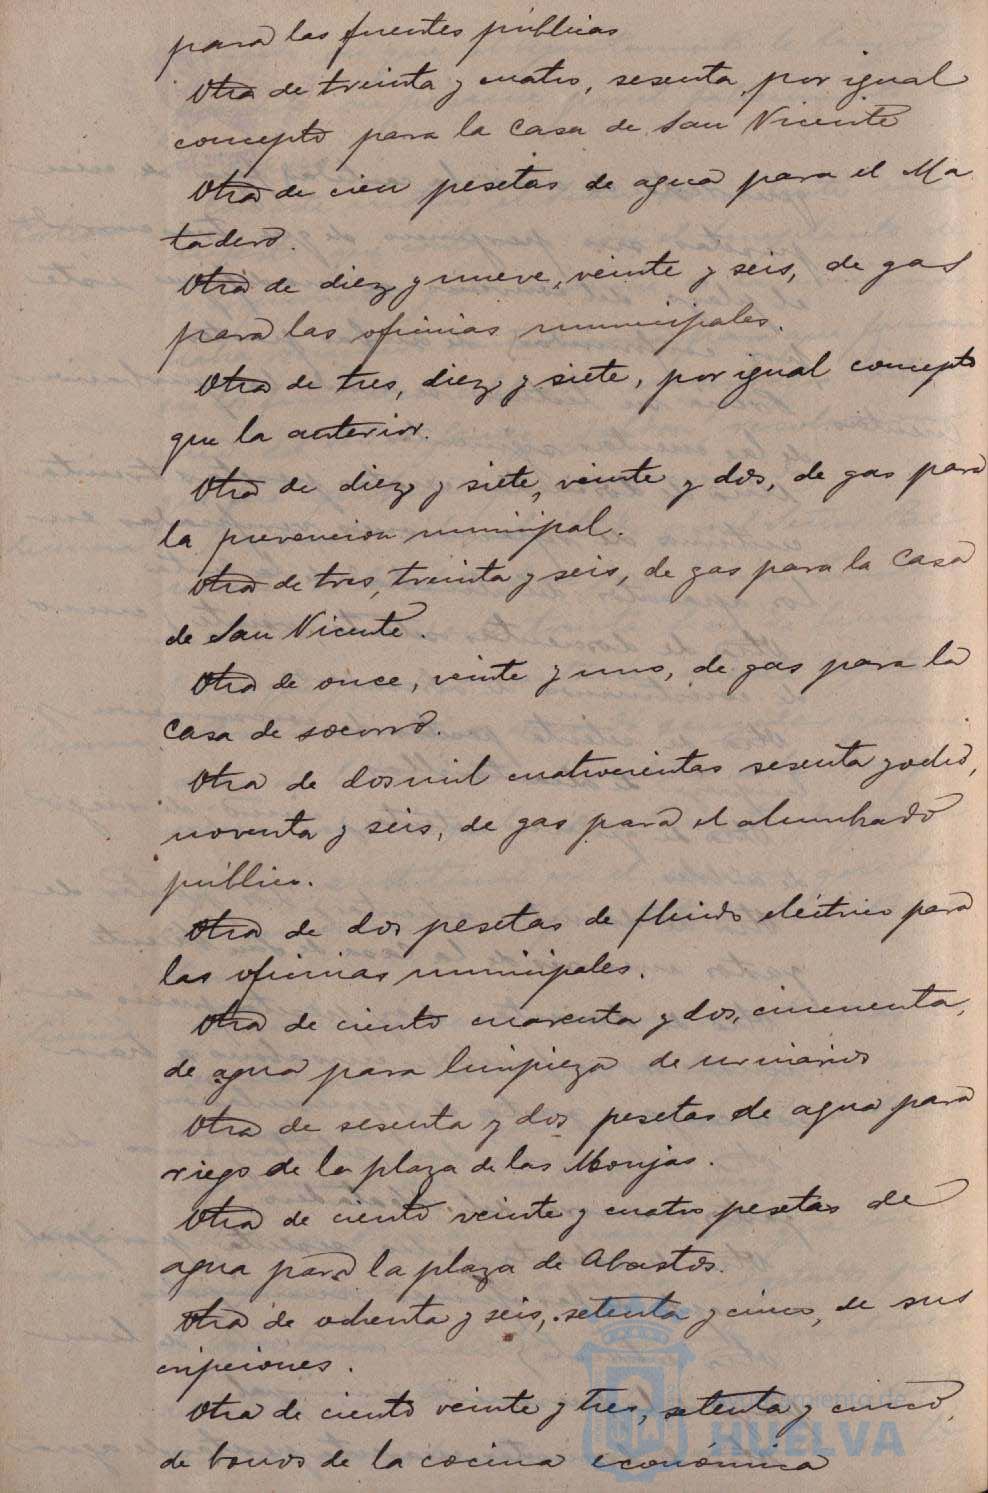 para las fuentes públicas
Otra de treinta y cuatro, sesenta, por igual
concepto para la Casa de San Vicente
Otra de cien pesetas de agua para el Ma
tadero.
Otra de diez y nueve, veinte y seis, de gas
para las oficinas municipales.
Otra de tres, diez y siete, por igual concepto
que la anterior.
Otra de diez y siete, veinte y dos, de gas para
la prevencion municipal.
Otra de tres, treinta y seis, de gas para la Casa
de San Vicente.
Otra de once, veinte y uno, de gas para la
Casa de socorro.
Otra de dos mil cuatrocientas sesenta y ocho,
noventa y seis, de gas para el alumbrado
público.
Otra de dos pesetas de fluido eléctrico para
las oficinas municipales.
Otra de ciento cuarenta y dos, cincuenta,
de agua para limpieza de urinarios
Otra de sesenta y dos pesetas de agua para
riego de la plaza de las Monjas.
Otra de ciento veinte y cuatro pesetas de
agua para la plaza de Abastos.
Otra de ochenta y seis, setenta y cinco, de sus
cripciones.
Otra de ciento veinte y tres, setenta y cinco,
de bonos de la cocina económica
Ayuntamiento de
HUELVA